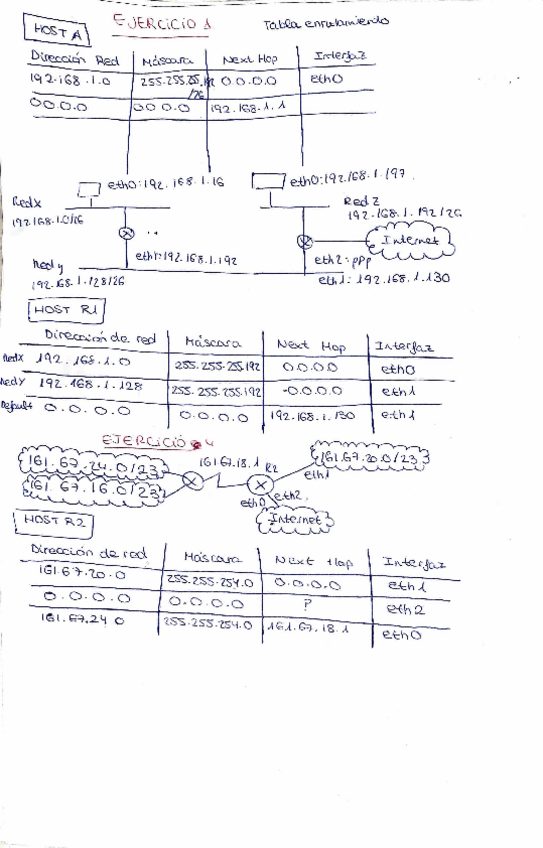 HOST A EJERCICIO 1 Tabla enrutamiento
Dirección Red Máscara Next Hop Interfaz
192.168.1.0 255.255.25.192 0.0.0.0 eth0
/26
0.0.0.0 0.0.0.0 192.168.1.1
eth0:192.168.1.16 eth0:192.168.1.197
Red X Red Z
192.168.1.0/26 192.168.1.192/26
Internet
Red y eth1:192.168.1.192 eth2:ppp
192.168.1.128/26 eth1:192.168.1.130
HOST R1
Dirección de red Máscara Next Hop Interfaz
RedX 192.168.1.0 255.255.255.192 0.0.0.0 eth0
RedY 192.168.1.128 255.255.255.192 -0.0.0.0 eth1
Default 0.0.0.0 0.0.0.0 192.168.1.130 eth1
EJERCICIO 4
161.67.24.0/23 161.67.18.1 R2 161.67.20.0/23
161.67.16.0/23 eth1
eth0 eth2.
HOST R2 Internet
Dirección de red Máscara Next Hop Interfaz
161.67.20.0 255.255.254.0 0.0.0.0 eth1
0.0.0.0 0.0.0.0 ? eth2
161.67.24 0 255.255.254.0 161.67.18.1 eth0